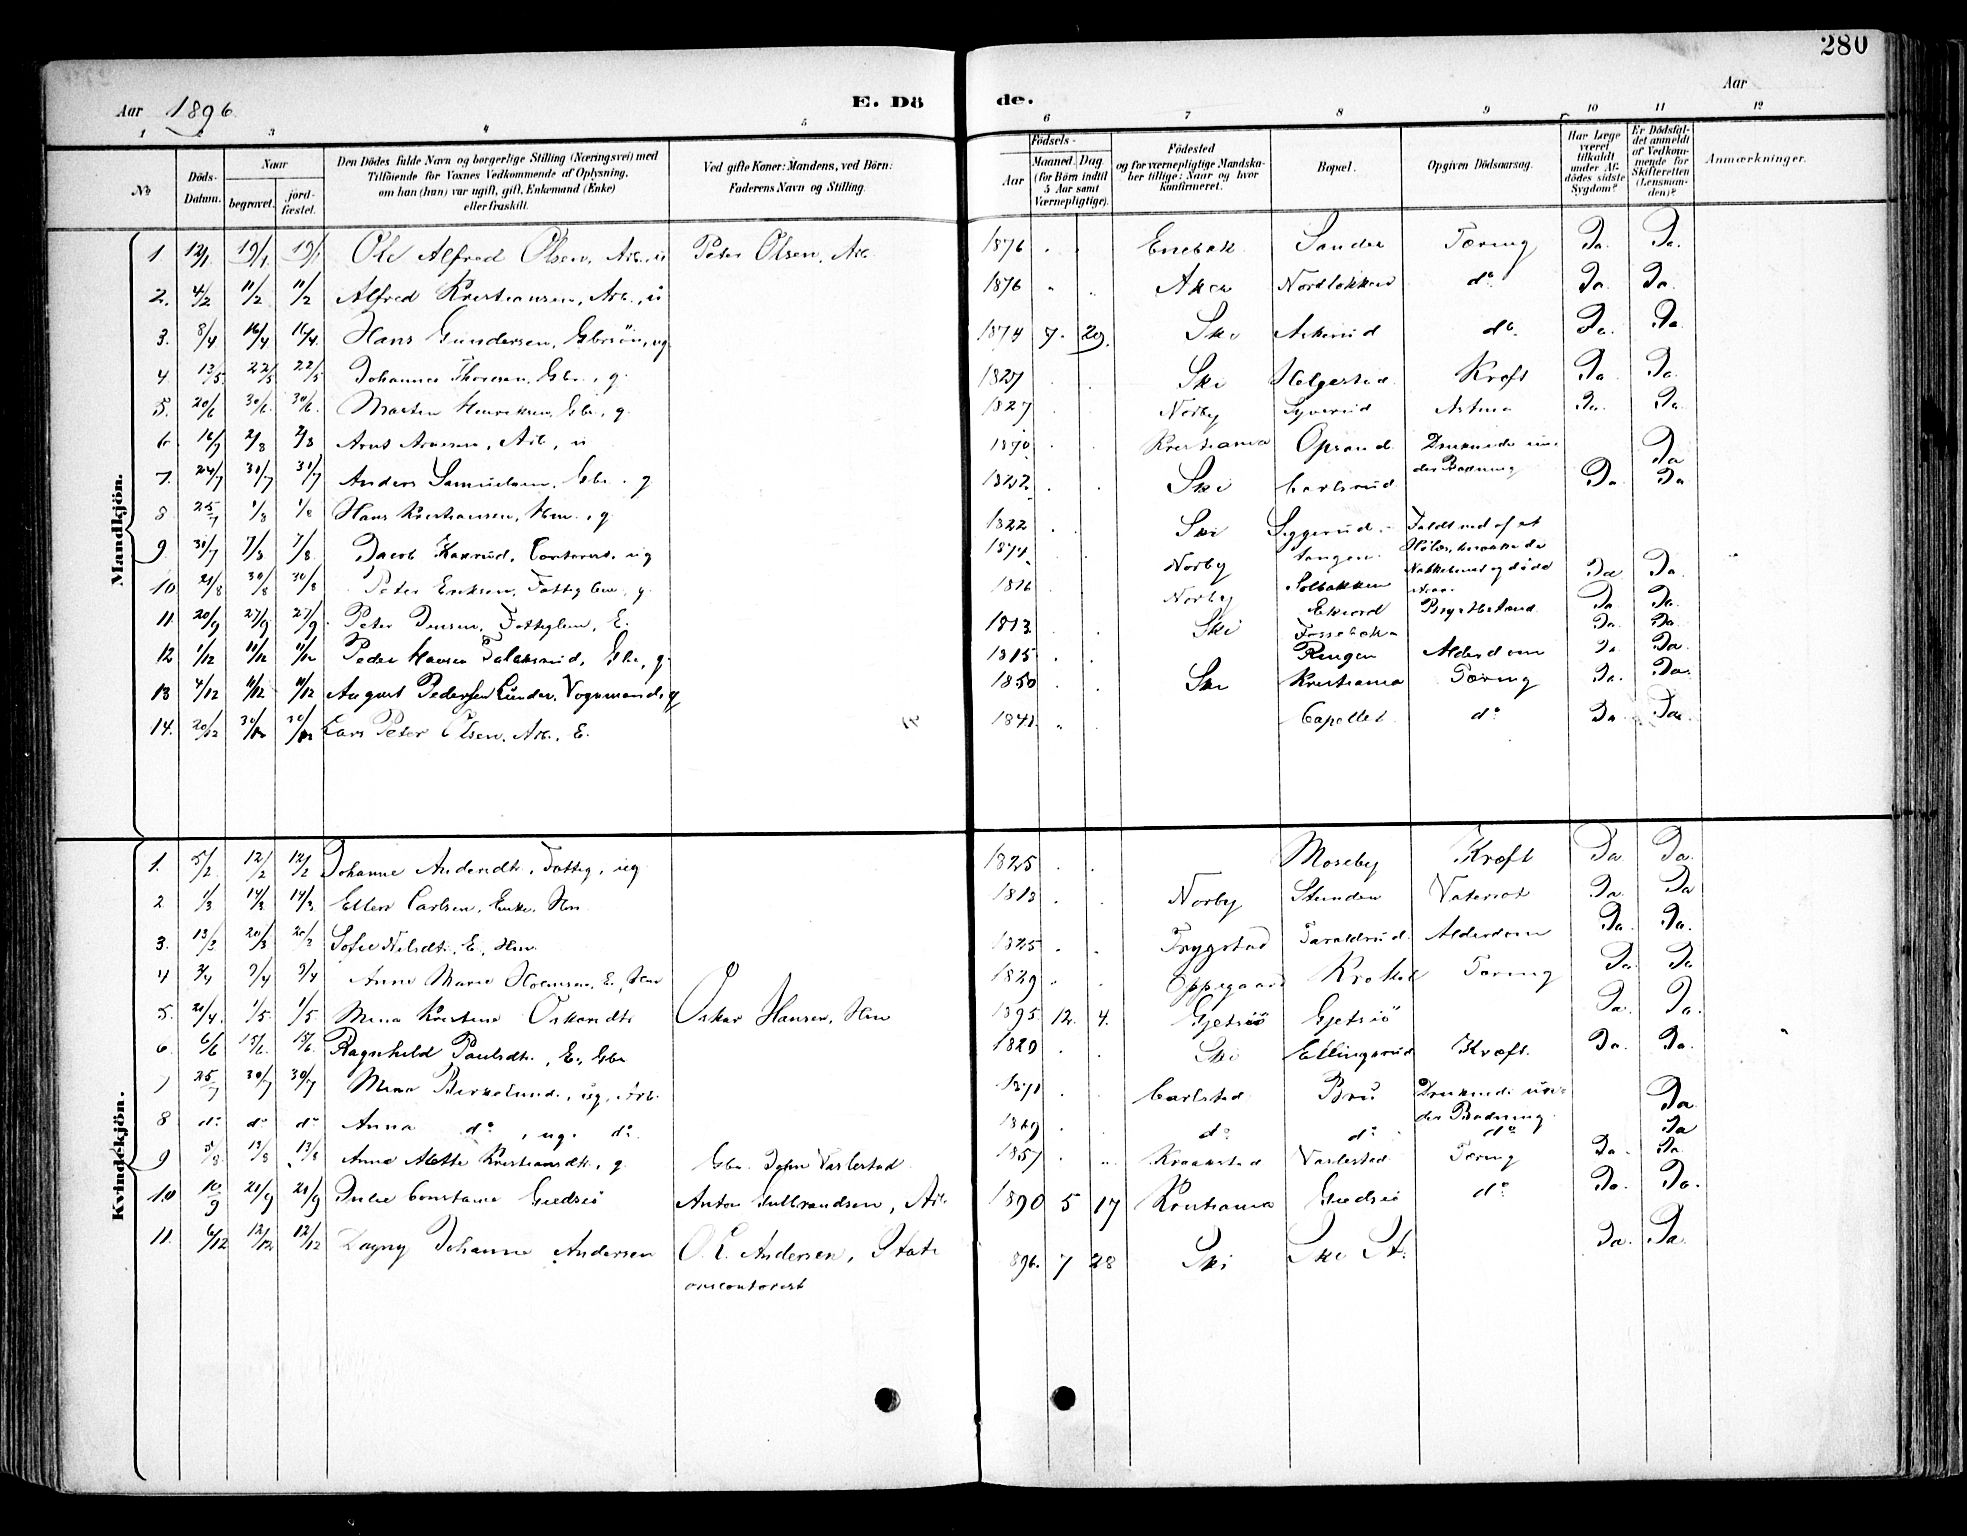 280
Aar 1896.
E. Dö de.
Aar
1 2 3 4 5 6 7 8 9 10 11 12
No
Döds-Datum.
Naar
begravet. jordfæstet.
Den Dödes fulde Navn og borgerlige Stilling (Næringsvei) med
Tilföiende for Voxnes Vedkommende af Oplysning,
om han (hun) var ugift, gift, Enkemand (Enke)
eller fraskilt.
Ved gifte Koner: Mandens, ved Börn:
Faderens Navn og Stilling.
Födsels-
Aar
Maaned. Dag
(for Börn indtil
5 Aar samt
Værnepligtige).
Födested
og for værnepligtige Mandskaber tillige: Naar og hvor
konfirmeret.
Bopæl.
Opgiven Dödsaarsag.
Har Læge
været
tilkaldt
under Afdödes sidste
Sygdom?
Er Dödsfaldet anmeldt
af Vedkommende for
Skifteretten
(Lensmanden)?
Anmærkninger.
Mandkjön.
1 12/1 19/1 19/1 Ole Alfred Olsen, Arb. u Peter Olsen, Arb. 1876 Enebak Sander Tæring Ja. Ja.
2. 4/2 11/2 11/2 Alfred Kristiansen, Arb., u 1876 Aker Nordlökken do Ja. Ja.
3. 8/4 16/4 16/4 Hans Gundersen, Gbrsön, ug. 1874 7. 29. Ski Askerud do. Ja. Ja.
4 13/5 22/5 22/5 Johannes Thoresen, Gbr., g. 1827 Ski Holgerstad Kræft Ja Ja.
5. 20/6 30/6 30/6 Martin Henriksen, Gbr., g. 1827 Norby Syverud Astma Ja. Ja.
6 16/7 2/8 2/8 Arnt Arnesen, Arb., u 1870 Kristiania Opsand Druknede under Badning Ja
7. 24/7 31/7 31/7 Anders Samuelsen, Gbr., g 1822 Ski Carlsrud Ja. Ja
8 25/7 1/8 1/8 Hans Kristiansen, Hm., g. 1822 Ski Siggerud Faldt ned af et
9. 31/7 7/8 7/8 Jacob Kaxrud, Contorist, ug 1874 Norby Tangen Nakkebenet og döde Ja Ja.
10 21/8 30/8 30/8 Peter Eriksen, Fattiglem, g. 1816 Norby Solbakken Ja Ja.
11. 20/9 27/9 27/9 Peter Jensen, Fattiglem, E. 1813 Ski Ekeord Brystbetænd. Ja. Ja.
Fossebakk
12 1/12 11/12 11/12 Peder Hansen Falaksrud, Gbr., g. 1815 Ringen Alderdom Ja Ja
13 4/12 11/12 11/12 August Pedersen Sunder, Vognmand, g 1850 Ski Kristiania Tæring Ja. Ja.
14. 20/12 30/12 30/12 Lars Peter Olsen, Arb., E. 1841 Capellet do Ja Ja.
Kvindekjön.
1. 5/2 12/2 12/2 Johanne Andersdt., Fattig, ug 1825 Moseby Kræft Ja. Ja.
2 1/3 14/3 14/3 Ellen Carlsen, Enke, Hm 1813 Norby Stunden Vatersot Ja. Ja
3. 13/3 20/3 20/3 Sofie Nilsdt., E., Hm. 1825 Trygstad Taraldrud Alderdom Ja. Ja.
4 3/4 9/4 9/4 Anne Marie Holmsen, E., Hm 1829 Oppegaard Krokhol Tæring Ja. Ja
5. 21/4. 1/5. 1/5 Mina Kristine Oskarsdt. Oskar Hansen, Hm 1895 12. 4. Gjetsjö Gjetsjö Ja. Ja.
6. 6/6 15/6. 15/6. Ragnhild Paulsdt., E., Gbr 1820 Ski Ellingsrud Kræft. Ja. Ja.
7 25/7 30/7 30/7 Mina Birkelund, ug, Arb. 1871 Carlstad Bru Druknede under Badning Ja
8 do do do Anna do, ug. do. 1869 do do do Ja
9 5/8 13/8 13/8 Anne Alette Kristiansdt., g. Gbr. John Varlestad 1857 Kraakstad Varlestad Tæring Ja. Ja.
10 10/9 20/9 20/9 Julie Constance Gjedsjö Anton Gulbrandsen, Arb. 1890 5 17 Kristiania Gjedsjö do. Ja. Ja.
11. 6/12 12/12 12/12 Dagny Johanne Andersen O. E. Andersen, Stations- 1896. 7 28 Ski Ski St. Ja. Ja.